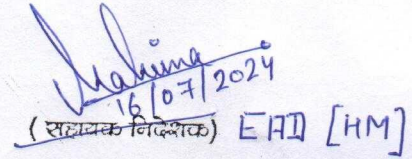 Mahima
16/07/2024
(सहायक निदेशक) EAD [HM]